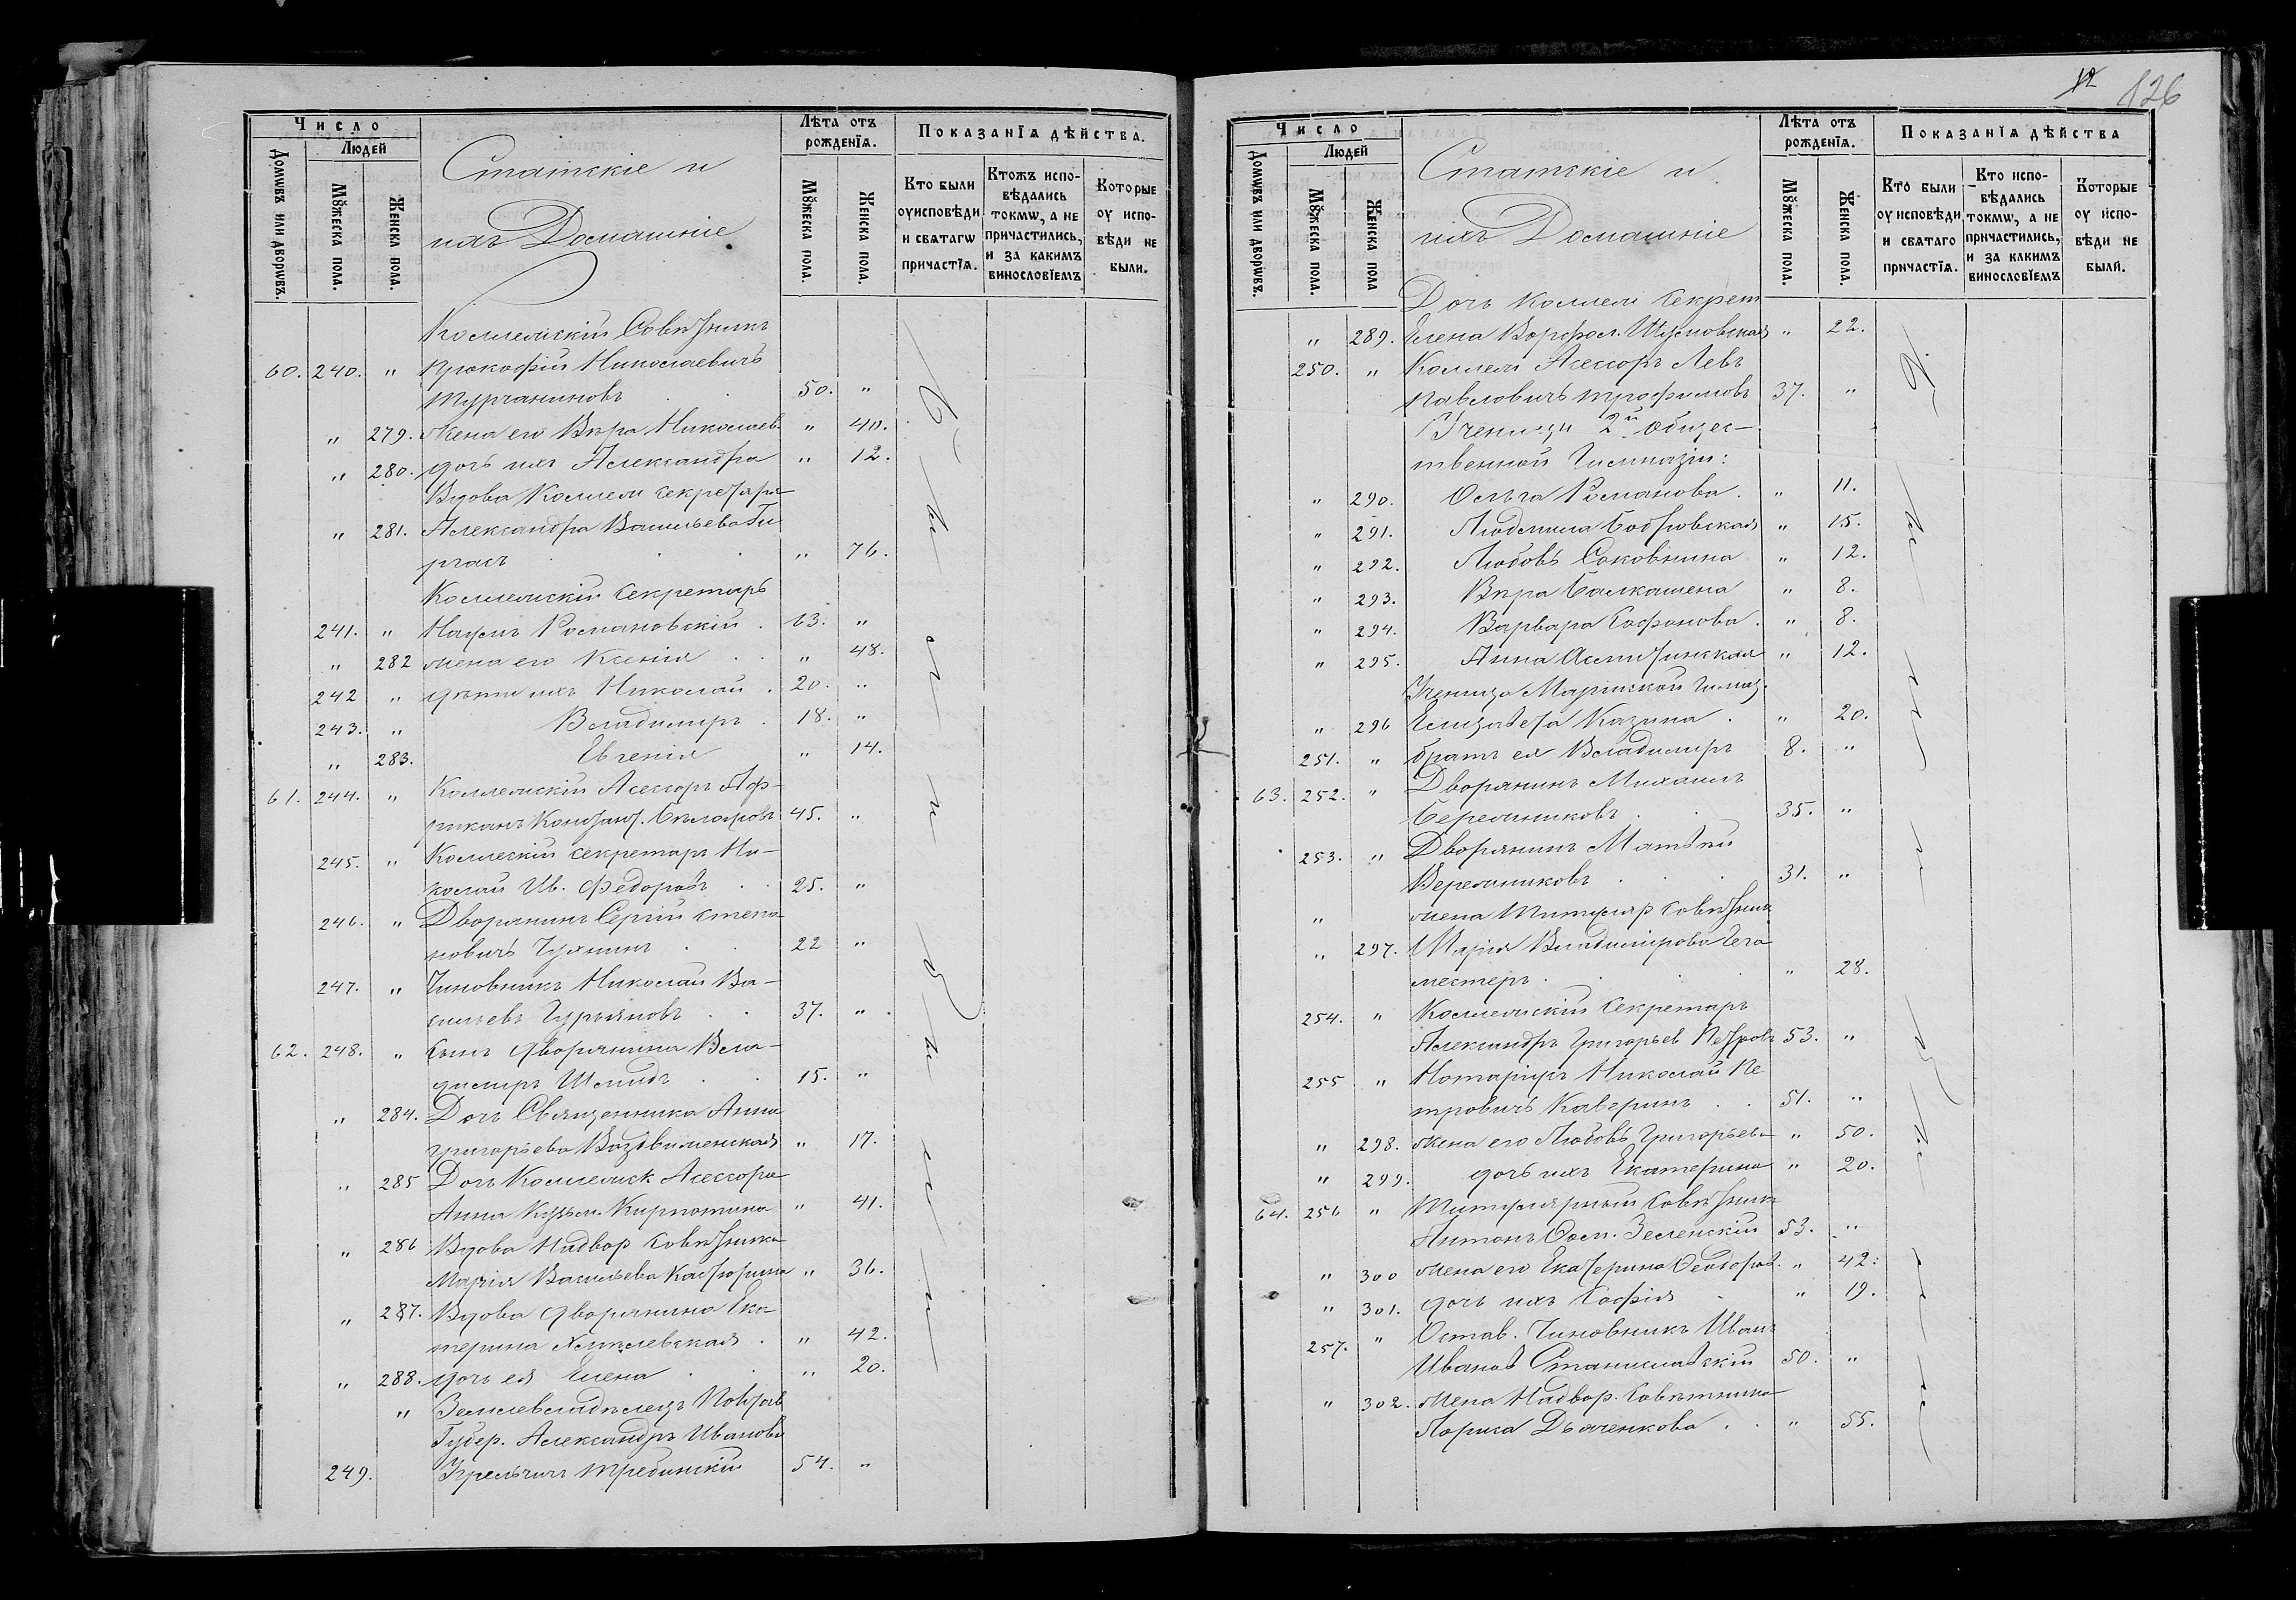 Число
Людей
Домѡвъ или дворѡвъ.
Мꙋжеска пола.
Женска пола.
Статскіе и
ихъ Домашніе
Лѣта отъ рожденїѧ.
Мꙋжеска пола.
Женска пола.
Показанїѧ дѣйства.
Кто были оуисповѣди и свѧтагѡ причастїѧ.
Ктожъ исповѣдались токмѡ, а не причастились, и за какимъ винословїемъ
Которые оу исповѣди не были.
Коллежскій Совѣтникъ
60. 240. " Прокофій Николаевичъ
Турчаниновъ 50. "
" 279. Жена его Вѣра Николаев. " 40.
" 280. дочь ихъ Александра " 12.
Вдова Коллеж секретаря
" 281. Александра Васильева Ги
" 76.
Коллежскій Секретарь
241. " Наумъ Романовскій . 63. "
" 282 жена его Ксенія . . " 48.
242 " дѣти ихъ Николай . 20. "
243. " Владимиръ . 18. "
" 283. Евгенія " 14.
61. 244. " Коллежскій Асессоръ Аф-
риканъ Констант. Бѣлаговъ 45. "
245. " Коллескій секретарь Ни-
колай Ив. Федоровъ . . 25. "
246. " Дворянинъ Сергій Степа-
новичъ . . 22 "
247. " Чиновникъ Николай Ва-
сильевъ Гурьяновъ . . 37. "
62. 248. " Сынъ дворянина Вла-
димиръ Шмидъ . . 15. "
" 284. Дочь Священника Анна
Григорьева Воздвиженская " 17.
" 285 Дочь Коллежск Асессора
Анна Кузьм. Кирпотина " 41.
" 286 Вдова Надвор Совѣтника
Марія Васильева " 36.
" 287. Вдова дворянина Ека-
терина Хмѣлевская . " 42.
" 288. дочь ея Елена . " 20.
" Землевладѣлецъ Полтав
Губер. Александръ Ивановъ
249. Требинскій 54. "
Былии
были
12 126
Число
Людей
Домѡвъ или дворѡвъ.
Мꙋжеска пола.
Женска пола
Статскіе и
ихъ Домашніе
Лѣта отъ рожденїѧ.
Мꙋжеска пола.
Женска пола.
Показанїѧ дѣйства
Кто были оу исповѣди и свѧтаго причастїѧ.
Кто исповѣдались токмѡ, а не причастились, и за какимъ винословїемъ
Которые оу исповѣди не были.
Дочь Коллеж Секрет
" 289. Елена Варфол. " 22.
250. " Коллеж Асессоръ Левъ
Павловичъ Трофимовъ 37. "
Ученицы 2й Общес-
твенной Гимназіи:
" 290. Ольга Романова . " 11.
" 291. Людмила Бобровская " 15.
" 292. Любовь Соковнина " 12.
" 293. Вѣра Балкашена " 8.
" 294. Варвара Сафонова . " 8.
" 295. Анна " 12.
Ученица Маріинской гимназ.
" 296 Елизавета Казина . " 20.
251. " братъ ея Владимиръ 8. "
63. 252. " Дворянинъ Михаилъ
Бережниковъ . . 35. "
253. " Дворянинъ Матвѣй
Вережниковъ . . 31. "
" жена Титуляр Совѣтник
" 297. Марія Владимірова Геге
мейстеръ . . " 28.
254. " Коллежскій Секретарь
Александръ Григорьев Петровъ 53. "
255 " Нотаріусъ Николай Пе
тровичъ Каверинъ . . 51. "
" 298. жена его Любовь Григорьева " 50.
" 299. дочь ихъ Екатерина " 20.
64. 256 " Титулярный Совѣтникъ
Антонъ Осип. Зеленскій 53. "
" 300 жена его Екатерина Ѳеодоров. " 42.
" 301. дочь ихъ Софія . " 19.
257. " Остав. Чиновникъ Иванъ
Иванов Станиславскій 50. "
" 302. Жена Надвор. Совѣтника
Лариса Дьяченкова . . " 55.